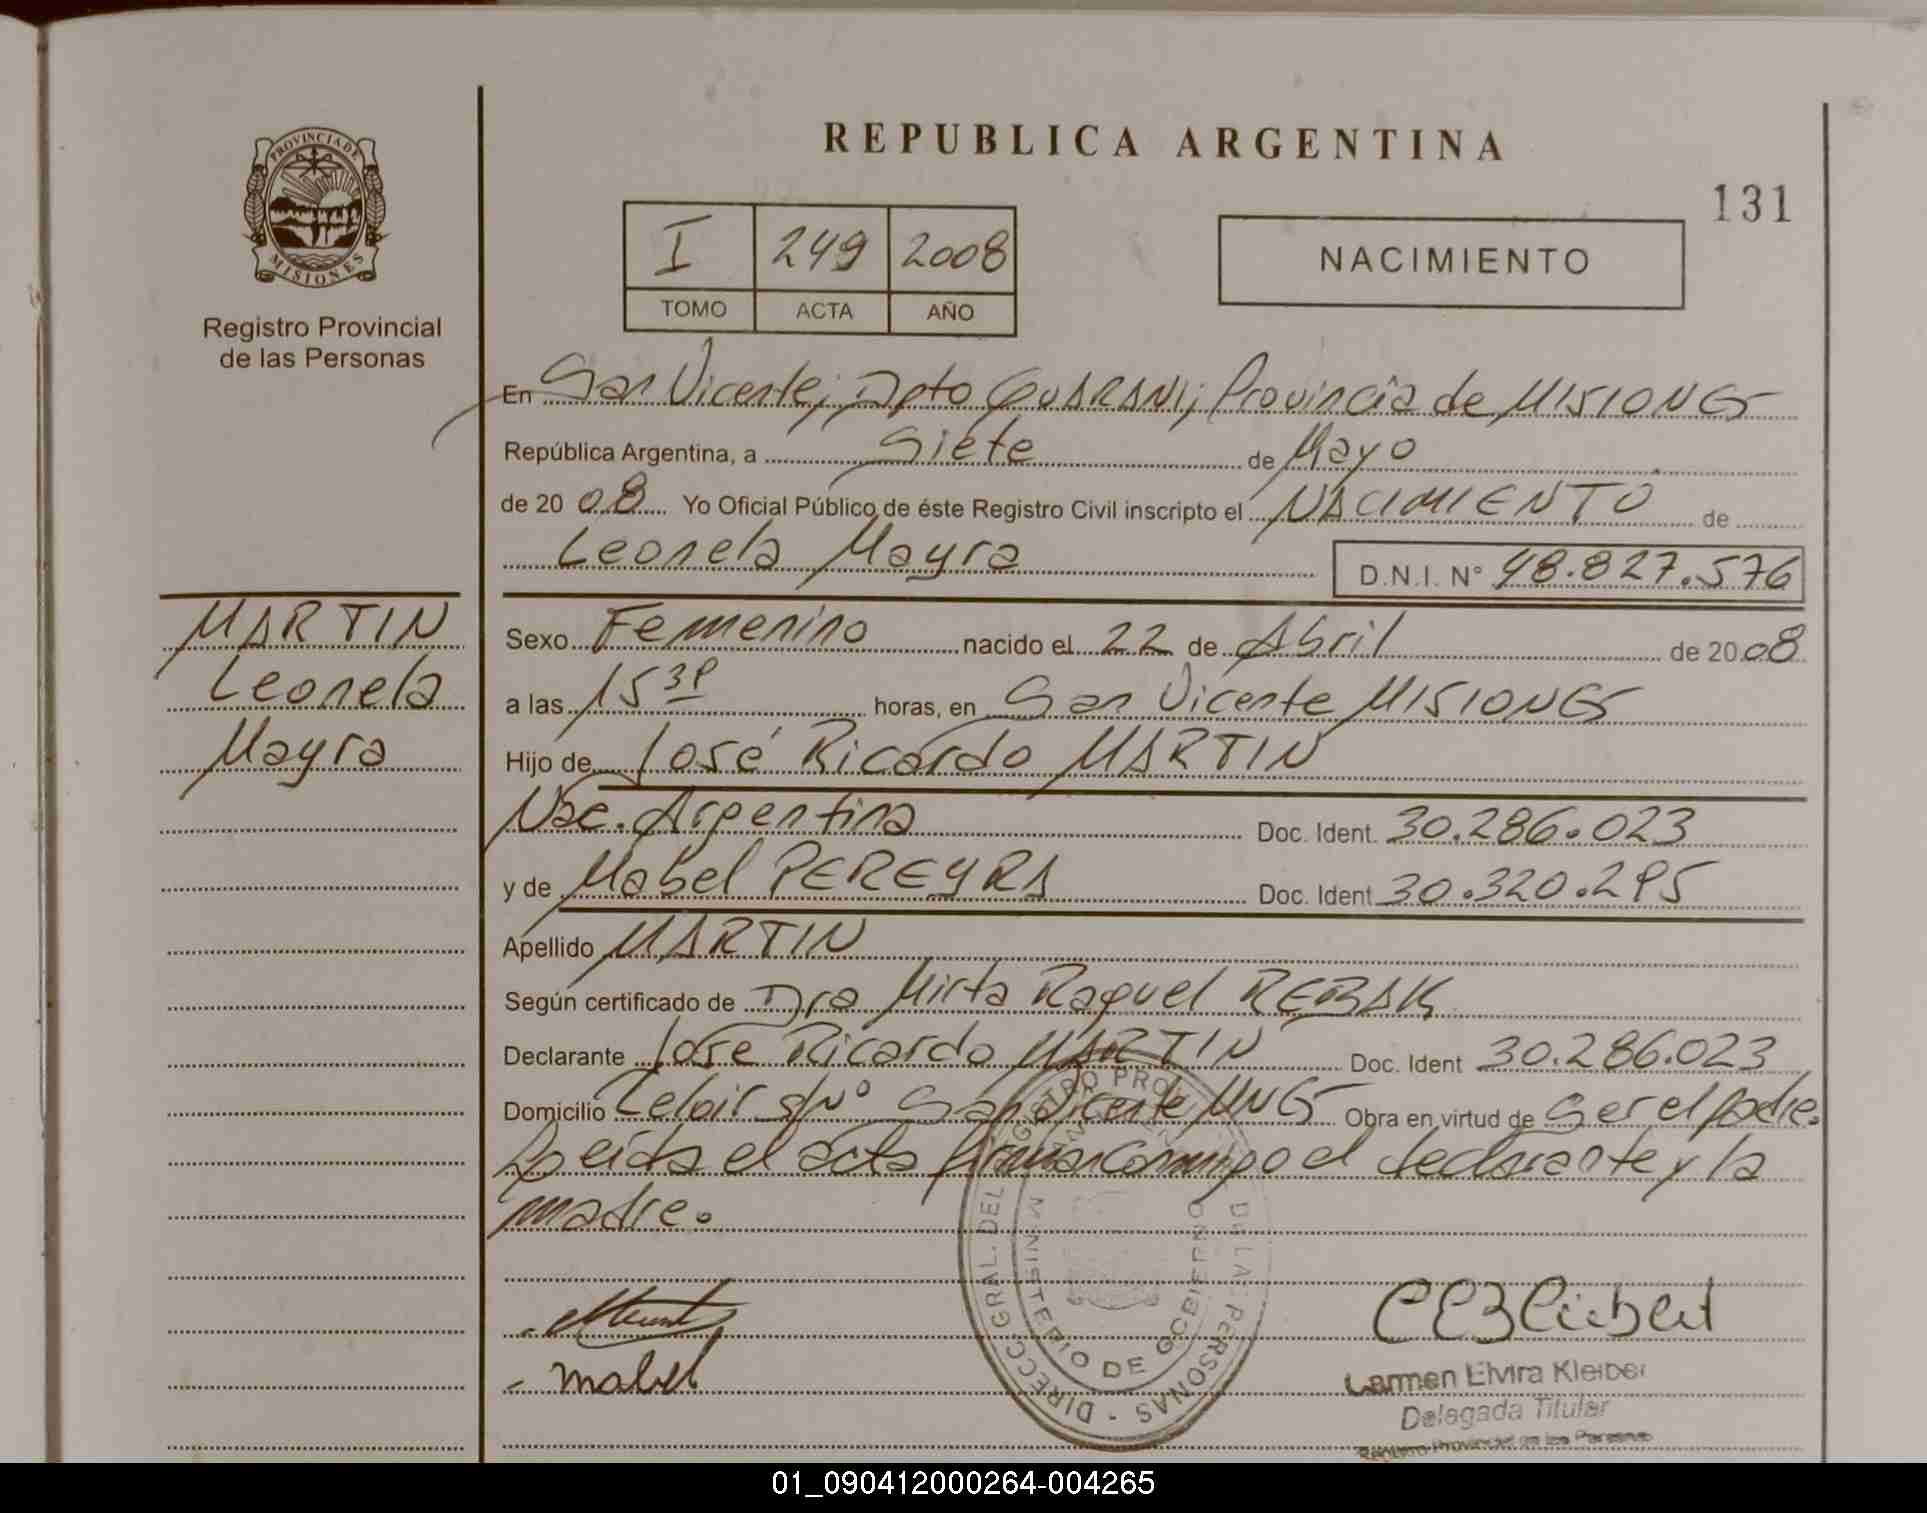 REPUBLICA ARGENTINA
131
PROVINCIA DE
MISIONES
Registro Provincial
de las Personas
I 249 2008
TOMO ACTA AÑO
NACIMIENTO
En San Vicente; Dpto GUARANI; Provincia de MISIONES
República Argentina, a Siete de Mayo
de 20 08 Yo Oficial Público de éste Registro Civil inscripto el NACIMIENTO de
Leonela Mayra D.N.I. Nº 48.827.576
MARTIN
Leonela
Mayra
Sexo Femenino nacido el 22 de Abril de 20 08
a las 15 horas, en San Vicente MISIONES
Hijo de José Ricardo MARTIN
Nac. Argentina Doc. Ident. 30.286.023
y de Mabel PEREYRA Doc. Ident 30.320.295
Apellido MARTIN
Según certificado de Dra Mirta Raquel REBAK
Declarante José Ricardo MARTIN Doc. Ident 30.286.023
Domicilio Leloir s/Nº San Vicente MNES Obra en virtud de Ser el padre.
Leida el acta firman conmigo el declarante y la
madre.
DIRECC. GRAL. DEL REGISTRO PROV. DE LAS PERSONAS
MINISTERIO DE GOBIERNO
Mabel
Carmen Elvira Kleiber
Delegada Titular
Registro Provincial de las Personas
01_090412000264-004265